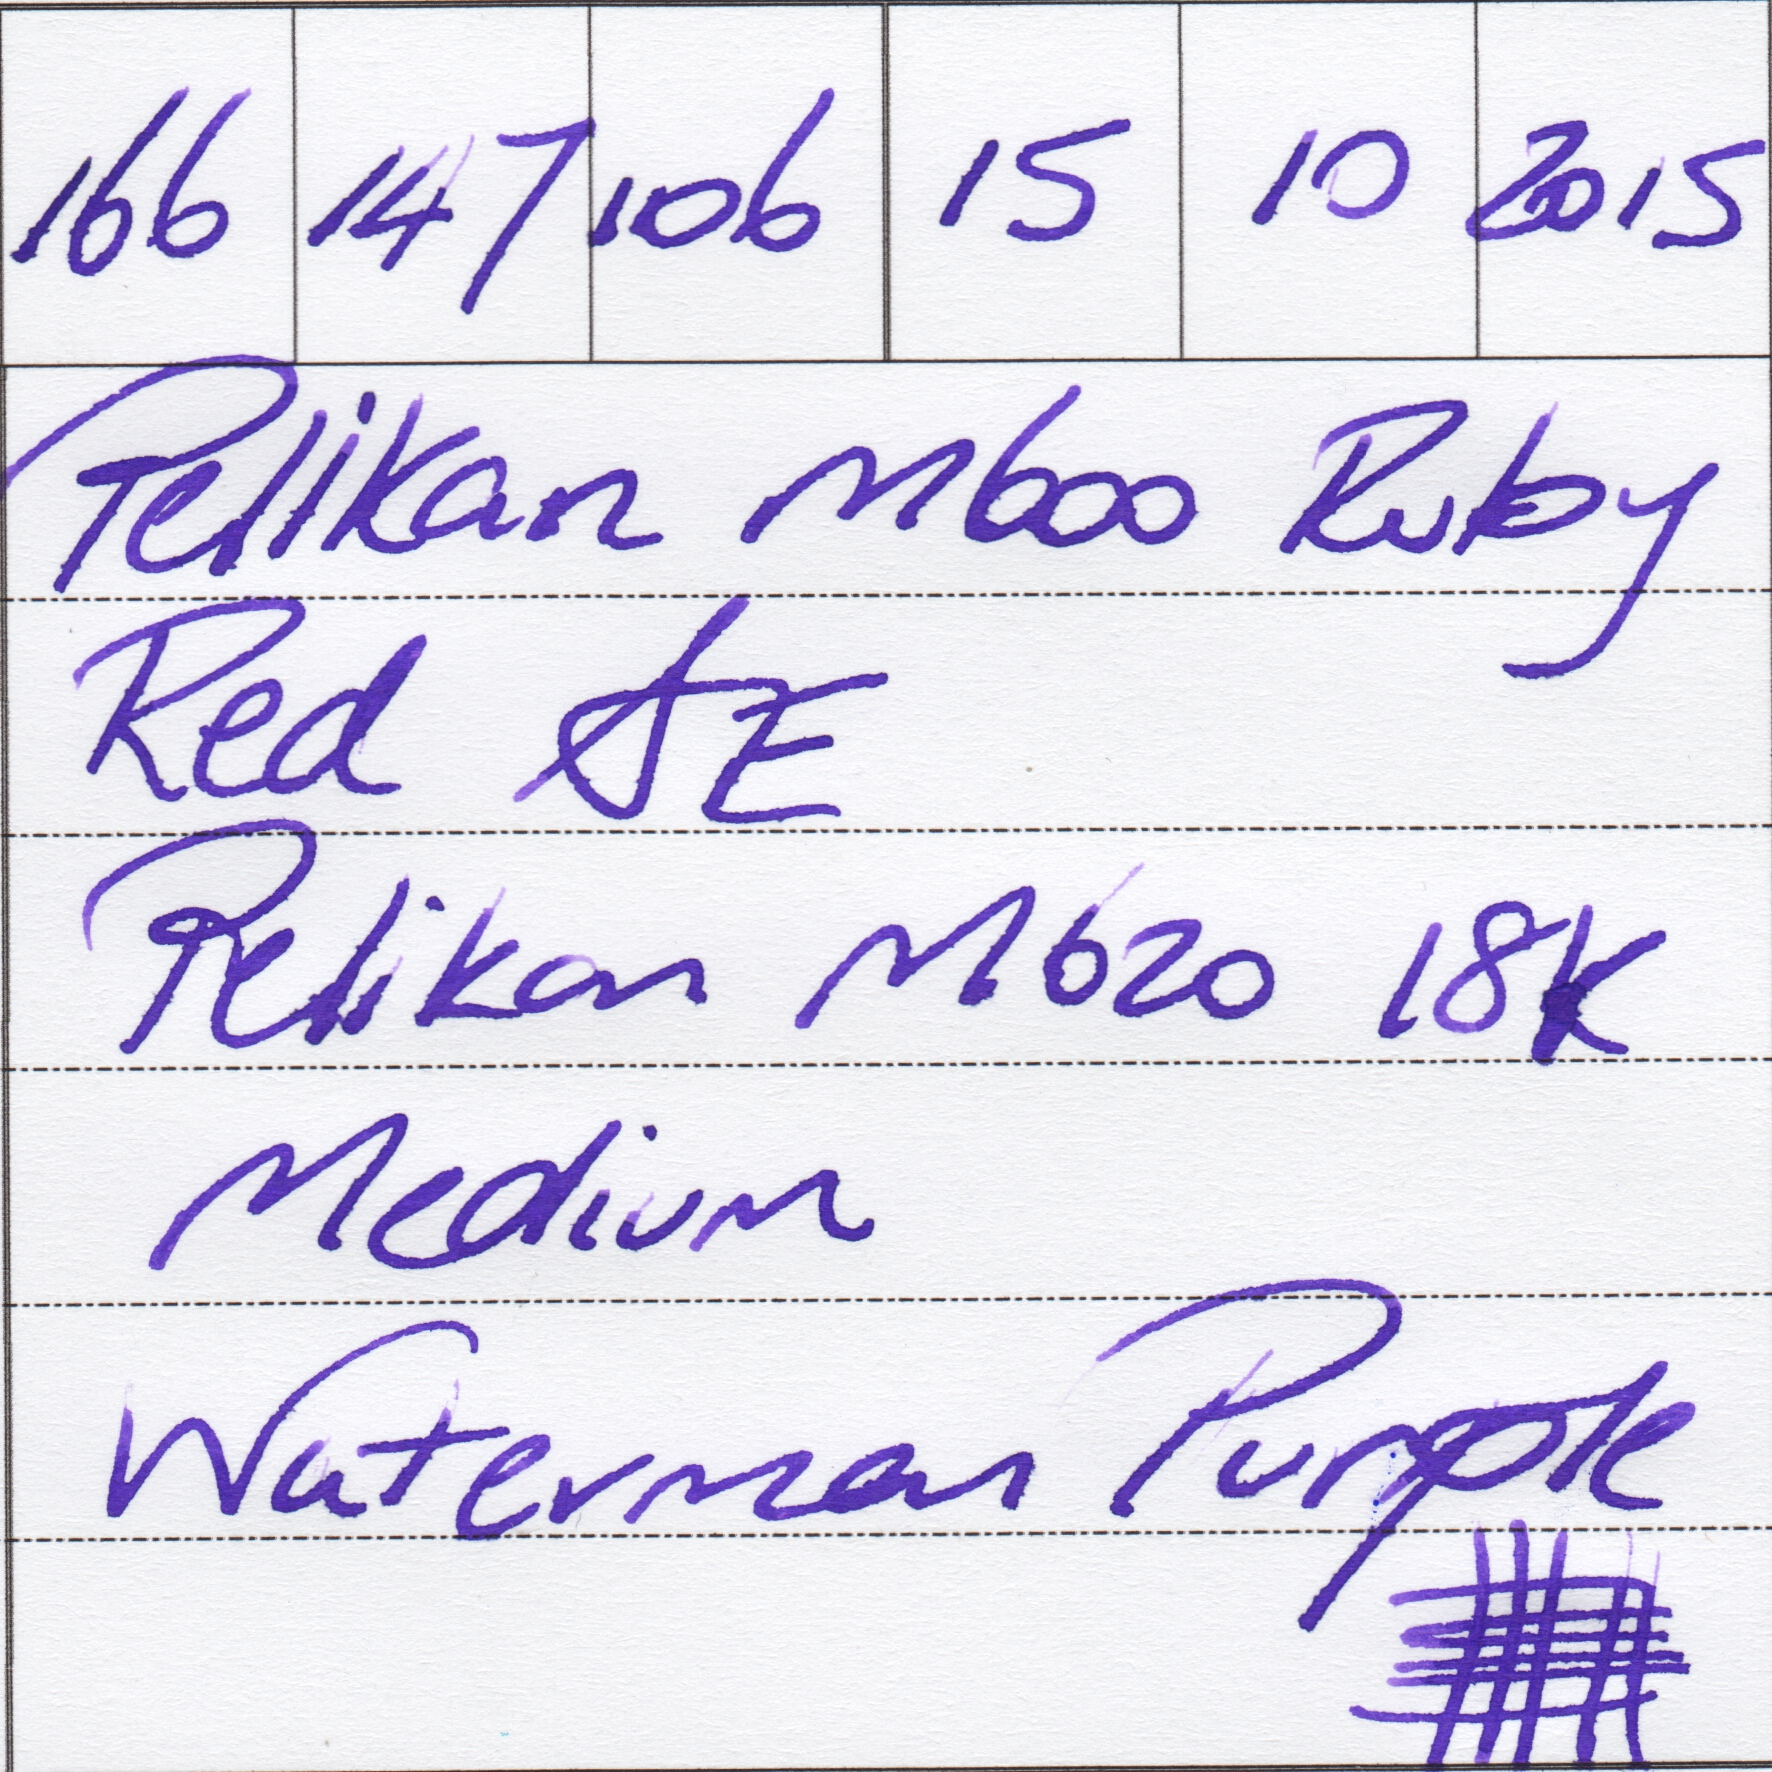 166 147 106 15 10 2015
Pelikan M600 Ruby
Red SE
Pelikan M620 18K
Medium
Waterman Purple